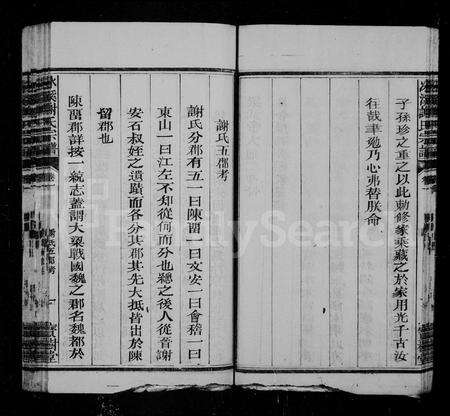 子孫珍之重之以此勅修家乘藏之於家用光千古汝
往哉聿勉乃心弗替朕命
謝氏五郡考
謝氏分郡有五一曰陳留一曰文安一曰會稽一曰
東山一曰江左不知從何而分也總之後人從音謝
安石叔姪之遺踏而各分其郡其先大抵皆出於陳
留郡也
陳留郡詳按一統志蓋謂大梁戰國魏之郡名魏都於
FamilySearch